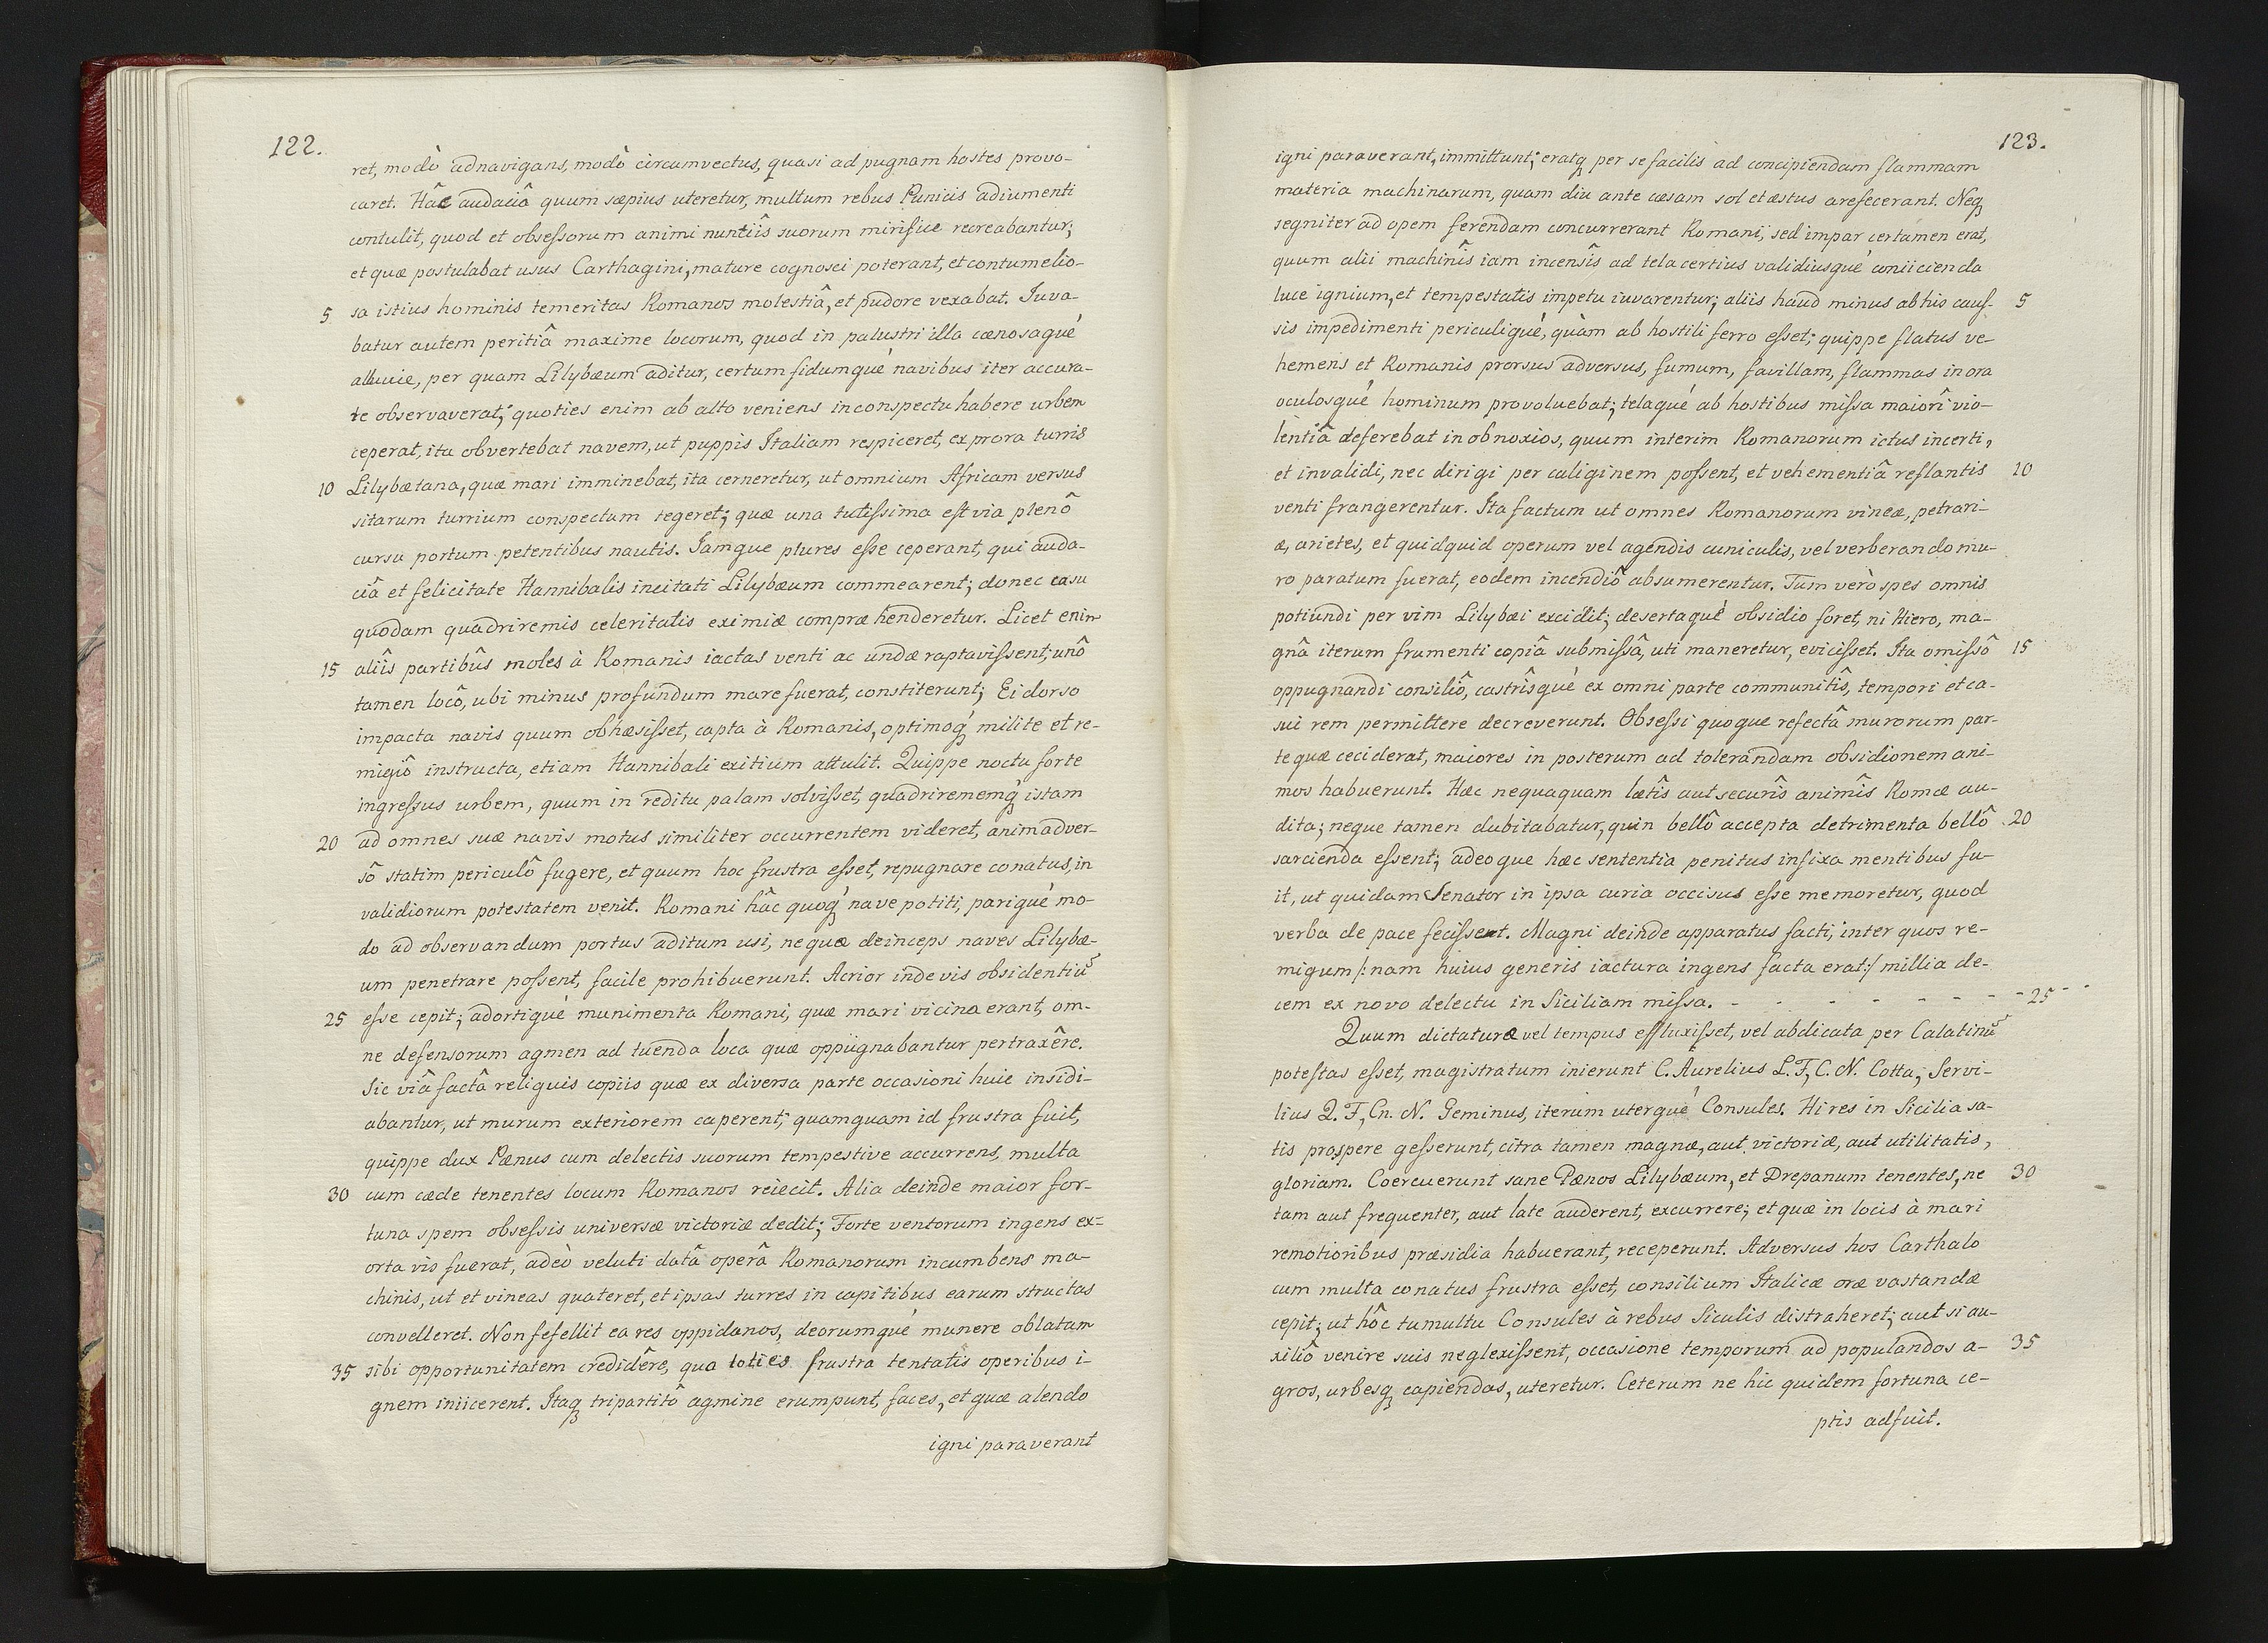 122.
ret, modò adnavigans, modò circumvectus, quasi ad pugnam hostes provo-
caret. Hâc audaciâ quum sæpius uteretur, multum rebus Punicis adiumenti
contulit, quod et obsessorum animi nuntiîs suorum mirifice recreabantur;
et quæ postulabat usus Carthagini, mature cognosci poterant, et contumelio-
5 sa istius hominis temeritas Romanos molestiâ, et pudore vexabat. Iuva-
batur autem peritiâ maxime locorum, quod in palustri illa cænosaqué
alluvie, per quam Lilybæum aditur, certum fidumqué navibus iter accura-
te observaverat; quoties enim ab alto veniens in conspectu habere urbem
ceperat, ita obvertebat navem, ut puppis Italiam respiceret, ex prora turris
10 Lilybætana, quæ mari imminebat, ita cerneretur, ut omnium Africam versus
sitarum turrium conspectum tegeret; quæ una tutissima est via plenô
cursu portum petentibus nautis. Iamque plures esse ceperant, qui auda-
ciâ et felicitate Hannibalis incitati Lilybæum commearent; donec casu
quodam quadriremis celeritatis eximiæ compræhenderetur. Licet enim
15 aliîs partibûs moles à Romanis iactas venti ac undæ raptavissent, unô
tamen locô, ubi minus profundum mare fuerat, constiterunt; Ei dorso
impacta navis quum obhæsisset, capta à Romanis, optimoq́ milite et re-
migiô instructa, etiam Hannibali exitium attulit. Quippe noctu forte
ingressus urbem, quum in reditu palam solvisset, quadrirememq́ istam
20 ad omnes suæ navis motus similiter occurrentem videret, animadver-
sô statim periculô fugere, et quum hoc frustra esset, repugnare conatus, in
validiorum potestatem venit. Romani hâc quoq́ nave potiti, pariqué mo-
do ad observandum portus aditum usi, ne quæ deinceps naves Lilybæ-
um penetrare possent, facile prohibuerunt. Acrior inde vis obsidentiũ
25 esse cepit; adortiqué munimenta Romani, quæ mari vicina erant, om-
ne defensorum agmen ad tuenda loca quæ oppugnabantur pertraxêre.
Sic viâ factâ reliquis copiis quæ ex diversa parte occasioni huic insidi-
abantur, ut murum exteriorem caperent; quamquam id frustra fuit,
quippe dux Pænus cum delectis suorum tempestive accurrens, multa
30 cum cæde tenentes locum Romanos reiecit. Alia deinde maior for-
tuna spem obsessis universæ victoriæ dedit; Forte ventorum ingens ex-
orta vis fuerat, adeò veluti datâ operâ Romanorum incumbens ma-
chinis, ut et vineas quateret, et ipsas turres in capitibus earum structas
convelleret. Non fefellit ea res oppidanos, deorumqué munere oblatam
35 sibi opportunitatem credidêre, qua toties frustra tentatis operibus i-
gnem iniicerent. Itaq tripartitô agmine erumpunt, faces, et quæ alendo
igni paraverant
123.
igni paraverant, immittunt; eratq per se facilis ad concipiendam flammam
materia machinarum, quam diu ante cæsam sol et æstus arefecerant. Neq
segniter ad opem ferendam concurrerant Romani, sed impar certamen erat,
quum alii machinîs iam incensîs ad tela certius validiusqué coniicienda
luce ignium, et tempestatis impetu iuvarentur; aliis haud minus ab his caus- 5
sis impedimenti periculiqué, quàm ab hostili ferro esset; quippe flatus ve-
hemens et Romanis prorsus adversus, fumum, favillam, flammas in ora
oculosqué hominum provoluebat; telaqué ab hostibus missa maiorî vio-
lentiâ deferebat in obnoxios, quum interim Romanorum ictus incerti,
et invalidi, nec dirigi per caliginem possent, et vehementiâ reflantis 10
venti frangerentur. Ita factum ut omnes Romanorum vineæ, petrari-
æ, arietes, et quidquid operum vel agendis cuniculis, vel verberando mu-
ro paratum fuerat, eodem incendiô absumerentur. Tum verò spes omnis
potiundi per vim Lilybæi excidit; desertaqué obsidio foret, ni Hiero, ma-
gnâ iterum frumenti copiâ submissâ, uti maneretur, evicisset. Ita omissô 15
oppugnandi consiliô, castrîsqué ex omni parte communitîs, tempori et ca-
sui rem permittere decreverunt. Obsessi quoque refectâ murorum par-
te quæ ceciderat, maiores in posterum ad tolerandam obsidionem ani-
mos habuerunt. Hæc nequaquam lætîs aut securîs animîs Romæ au-
dita; neque tamen dubitabatur, quin bellô accepta detrimenta bellô 20
sarcienda essent; adeoque hæc sententia penitus infixa mentibus fu-
it, ut quidam Senator in ipsa curia occisus esse memoretur, quod
verba de pace fecissent. Magni deinde apparatus facti, inter quos re-
migum /: nam huius generis iactura ingens facta erat :/ millia de-
cem ex novo delectu in Siciliam missa. - - - - - - - - 25 - -
Quum dictaturæ vel tempus effluxisset, vel abdicata per Calatinũ
potestas esset, magistratum inierunt C. Aurelius L. F, C. N. Cotta, Servi-
lius Q. F, Cn. N. Geminus, iterum uterqué Consules. Hi res in Sicilia sa-
tis prospere gesserunt, citra tamen magnæ, aut victoriæ, aut utilitatis,
gloriam. Coercuerunt sane Pænos Lilybæum, et Drepanum tenentes, ne 30
tam aut frequenter, aut late auderent, excurrere; et quæ in locis à mari
remotioribus præsidia habuerant, receperunt. Adversus hos Carthalo
cum multa conatus frustra esset, consilium Italicæ oræ vastandæ
cepit; ut hôc tumultu Consules à rebus Siculis distraheret; aut si au-
xiliô venire suis neglexissent, occasione temporum ad populandos a- 35
gros, urbesq capiendas, uteretur. Ceterum ne hic quidem fortuna ce-
ptis adfuit.